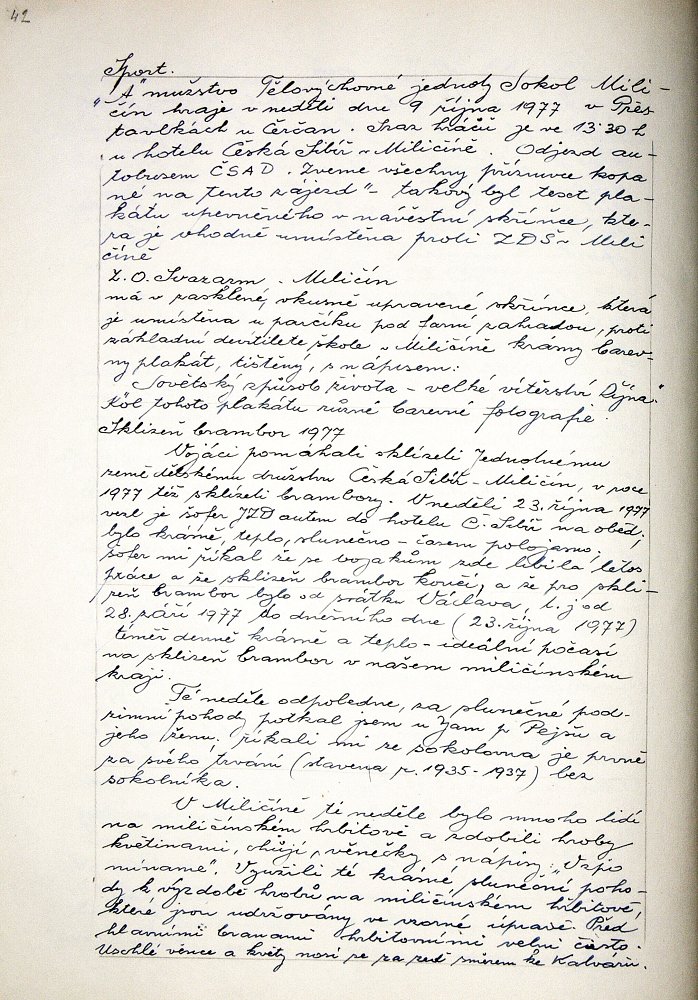 42
Sport.
„A" mužstvo Tělovýchovné jednoty Sokol Mili-
čín hraje v neděli dne 9 října 1977 v Přes
tavlkách u Čerčan. Sraz hráčů je ve 13.30 h
u hotelu Česká Sibiř v Miličíně. Odjezd au-
tobusem ČSAD. Zveme všechny příznivce kopa
né na tento zájezd" - takový byl text pla-
kátu upevněného v návěstní skříňce, kte-
rá je vhodně umístěna proti ZDŠ v Mili
číně
Z. O. Svazarm - Miličín
má v zasklené, vkusně upravené skřínce, která
je umístěna u parčíku pod farní zahradou, proti
základní devítileté škole v Miličíně krásný barev-
ný plakát, tištěný, s nápisem:
„Sovětský způsob života - velké vítězství Října."
Kol tohoto plakátu různé barevné fotografie.
Sklizeň brambor 1977
Vojáci pomáhali sklízeti Jednotnému
zemědělskému družstvu Česká Sibiř - Miličín, v roce
1977 též sklízeti brambory. V neděli 23. října 1977
vezl je šofer JZD autem do hotelu Č. Sibiř na oběd;
bylo krásně, teplo, slunečno - časem polojasno;
šofer mi říkal že se vojákům zde líbila letos
práce a že sklizeň brambor končí, a že pro skli-
zeň brambor bylo od svátku Václava, t. j. od
28. září 1977 do dnešního dne (23. října 1977)
téměř denně krásně a teplo - ideální počasí
na sklizeň brambor v našem miličínském
kraji.
Té neděle odpoledne, za slunečné pod-
zimní pohody potkal jsem u Jam p. Pejšu a
jeho ženu. Říkali mi že sokolovna je prvně
za svého trvání (stavena r. 1935 - 1937) bez
sokolníka.
V Miličíně té neděle bylo mnoho lidí
na miličínském hřbitově a zdobili hroby
květinami, chvojí, věnečky s nápisy: „Vzpo
mínáme". Využili té krásné, slunečné poho-
dy k výzdobě hrobů na miličínském hřbitově,
které jsou udržovány ve vzorné úpravě. Před
hlavními branami hřbitovními velmi čisto.
Uschlé věnce a květy nosí se za zeď směrem ke Kalvárii.